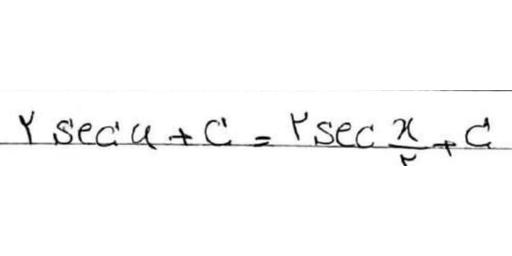 ۲ sec u + c = ۲ sec x/۲ + c